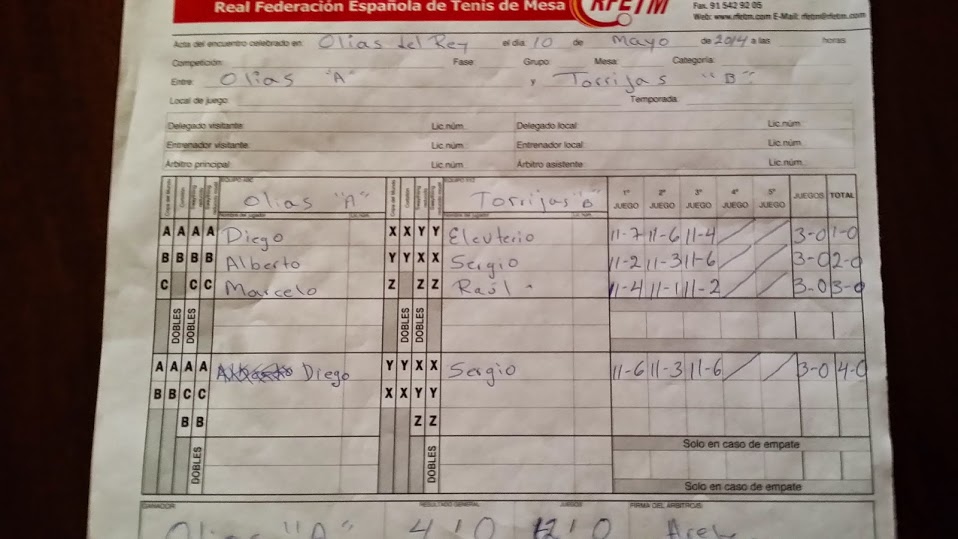 Real Federación Española de Tenis de Mesa RFETM Fax. 91 542 92 05
Web: www.rfetm.com E-Mail: rfetm@rfetm.com
Acta del encuentro celebrado en: Olias del Rey el día 10 de Mayo de 2014 a las horas
Competición: Fase: Grupo: Mesa: Categoría:
Entre: Olias "A" y Torrijas "B"
Local de juego: Temporada:
Delegado visitante: Lic.núm. Delegado local: Lic.núm.
Entrenador visitante: Lic.núm. Entrenador local: Lic.núm.
Árbitro principal: Lic.núm. Árbitro asistente: Lic.núm.
EQUIPO ABC EQUIPO XYZ
Olias "A" Torrijas "B" 1º JUEGO 2º JUEGO 3º JUEGO 4º JUEGO 5º JUEGO JUEGOS TOTAL
Nombre del jugador Lic. Núm. Nombre del jugador Lic. Núm.
A A A A Diego X X Y Y Eleuterio 11-7 11-6 11-4 3-0 1-0
B B B B Alberto Y Y X X Sergio 11-2 11-3 11-6 3-0 2-0
C C C Marcelo Z Z Z Raúl 11-4 11-1 11-2 3-0 3-0
DOBLES DOBLES DOBLES DOBLES
A A A A Diego Y Y X X Sergio 11-6 11-3 11-6 3-0 4-0
B B C C X X Y Y
B B Z Z
Solo en caso de empate
DOBLES DOBLES
Solo en caso de empate
GANADOR: RESULTADO GENERAL JUEGOS FIRMA DEL ARBITRO/S:
Olias "A" 4 0 12 0